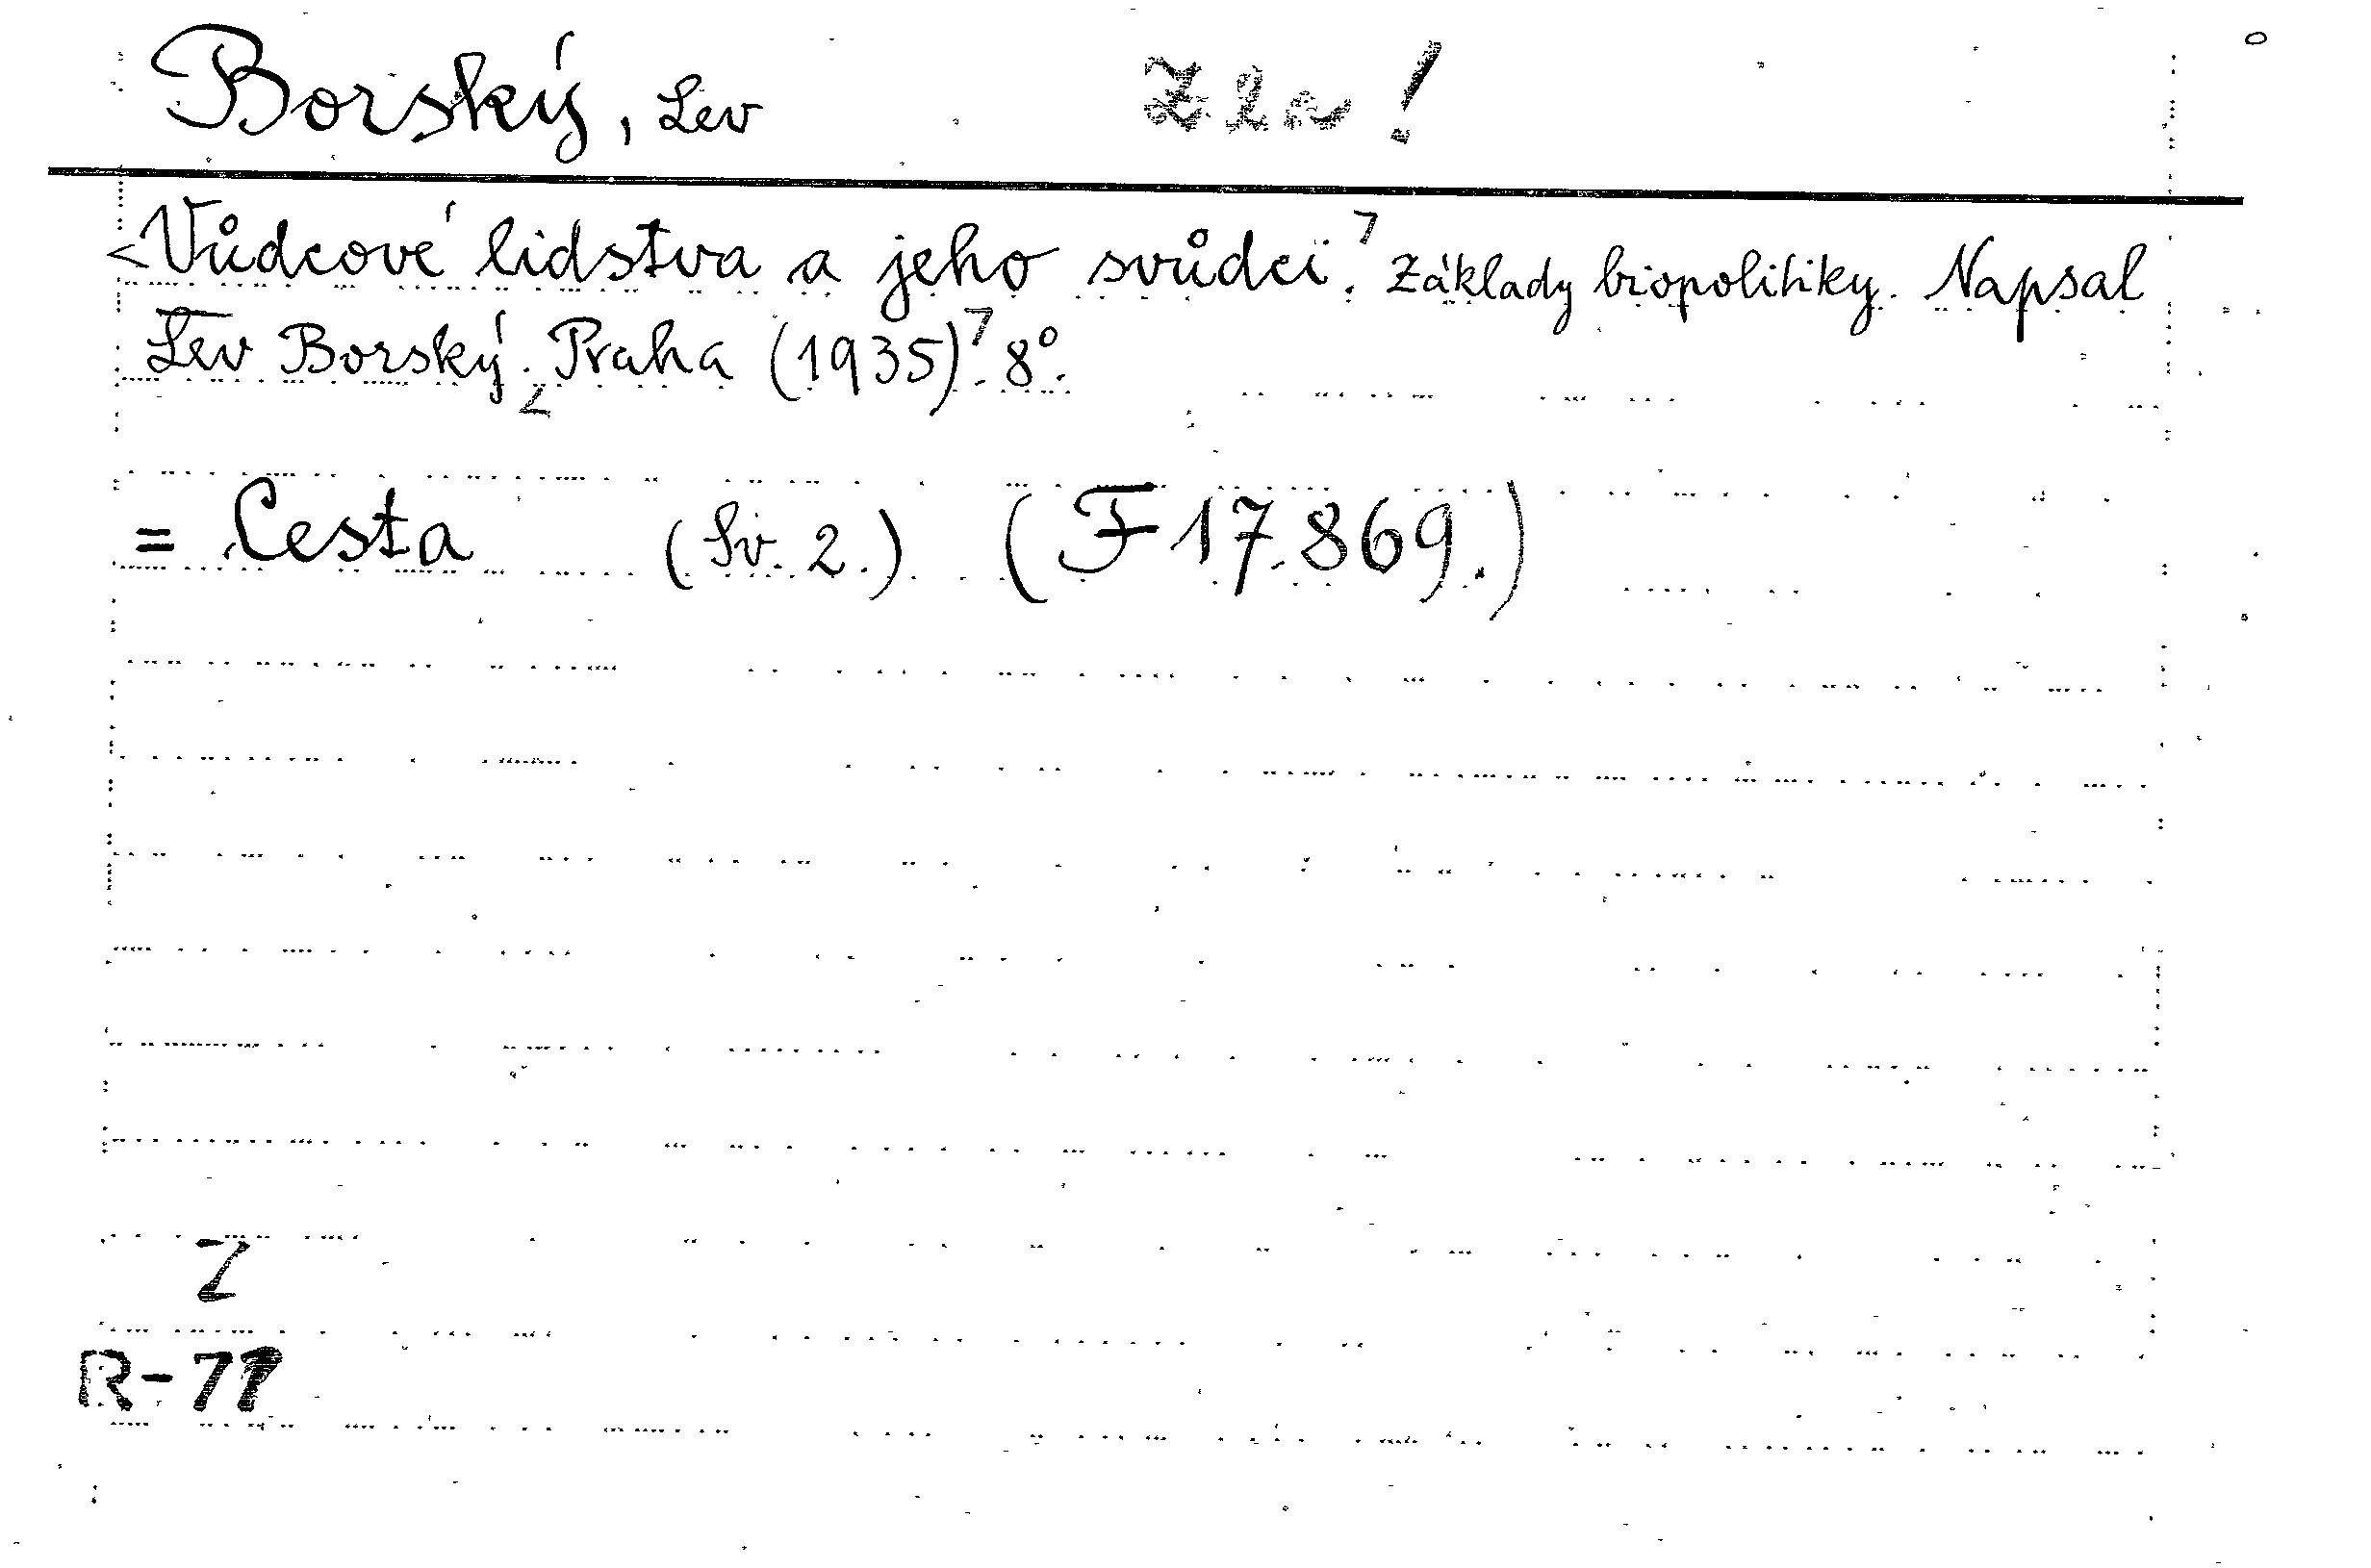 Borský, Lev
<Vůdcové lidstva a jeho svůdci.> Základy biopolitiky. Napsal
Lev Borský. <Praha (1935)>. 8°.
= Cesta (Sv. 2.) (F 17.869.)
Z